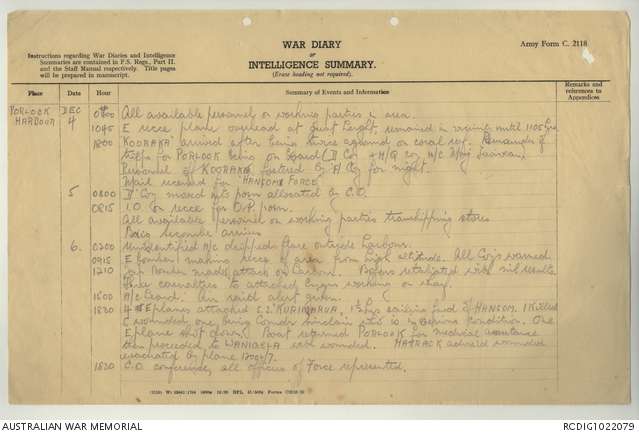 WAR DIARY
or
INTELLIGENCE SUMMARY.
(Erase heading not required).
Army Form C. 2118.
Instructions regarding War Diaries and Intelligence
Summaries are contained in F.S. Regs., Part II.
and the Staff Manual respectively. Title pages
will be prepared in manuscript.
Place Date Hour Summary of Events and Information Remarks and references to Appendices
PORLOCK HARBOUR DEC 4 0800 All available personnel on working parties in area.
1045 E recce plane overhead at great height, remained in vicinity until 1105 hrs
1800 KOORAKA arrived after being twice aground on coral reef. Remainder of
troops for PORLOCK being on board (D Coy + H/Q Coy, A/C
Personnel of KOORAKA fostered by A Coy for night.
Mail received for HANSON FORCE
5 0800 D Coy marched into posn allocated by C.O.
0815 I.O. on recce for O.P. posn.
All available personnel on working parties transhipping stores
arrives
6. 0200 Unidentified A/C dropped flare outside harbour.
0915 E bomber making recce of area from high altitude. All Coys warned
1210 Jap Bomber made attack on harbour. Bofors retaliated with nil results
Three casualties to attached Engrs working on
1600 A/C heard. Air raid alert given.
1830 4 E planes attacked S.S. KURIMARUA, 1½ hrs sailing of HANSON. 1 killed
wounded, one being Comdr Sinclair who is in serious condition. One
E plane shot down. Boat returned PORLOCK for medical assistance
then proceeded to WANIGELA with wounded. HATRACK advised wounded
evacuated by plane
1830 C.O. conference, all officers of Force represented.
AUSTRALIAN WAR MEMORIAL
RCDIG1022079